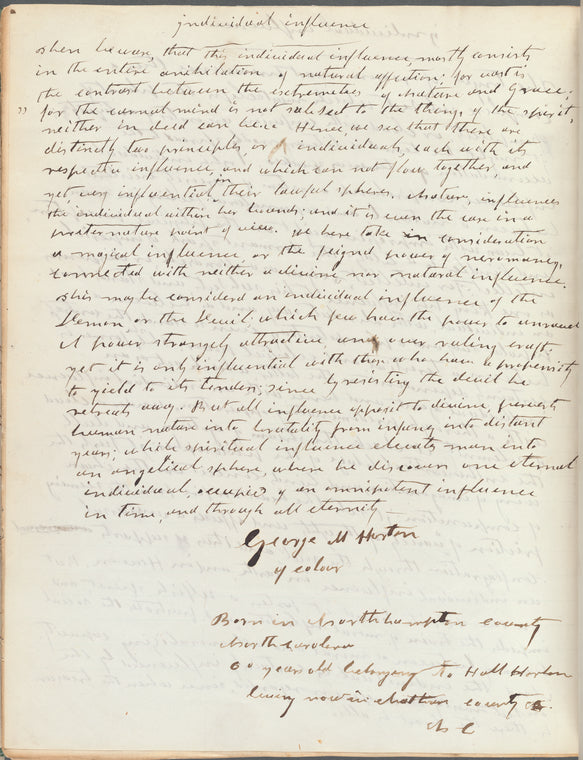 individual influence
then beware, that this individual influence mostly consists
in the entire anihilation of natural affection; for vast is
the contrast between the extremeties of Nature and Grace:
" for the carnal mind is not subject to the things of the spirit,
neither in deed can be". Hence, we see that there are
distinctly two principles or individuals, each with its
respective influence, and which can not flow together, and
yet, very influential in their lawful spheres. Nature, influences
the individual within her bounds; and it is even the case in a
preternature point of view. We here take in consideration
a magical influence, or the feigned power of necromancy,
connected with neither a divine nor natural influence.
This may be considerd an individual influence of the
Demon, or the Devil, which few have the power to unravel
A power strangely attractive, and over ruling craft
yet it is only influential with those who have a propensity
to yield to its tenders; since by resisting the devil he
retreats away. But all influence opposit to divine, perverts
human nature into brutality from infancy into distant
years; while spiritual influence elevates man into
an angelical sphere, where he discovers one eternal
individual, occupied of an omnipotent influence
in time, and through all eternity —
George M Horton
of colour
Born in Northhampton County
North Carolina
60 years old belonging to Hall Horton
living now in Chatham County
N C